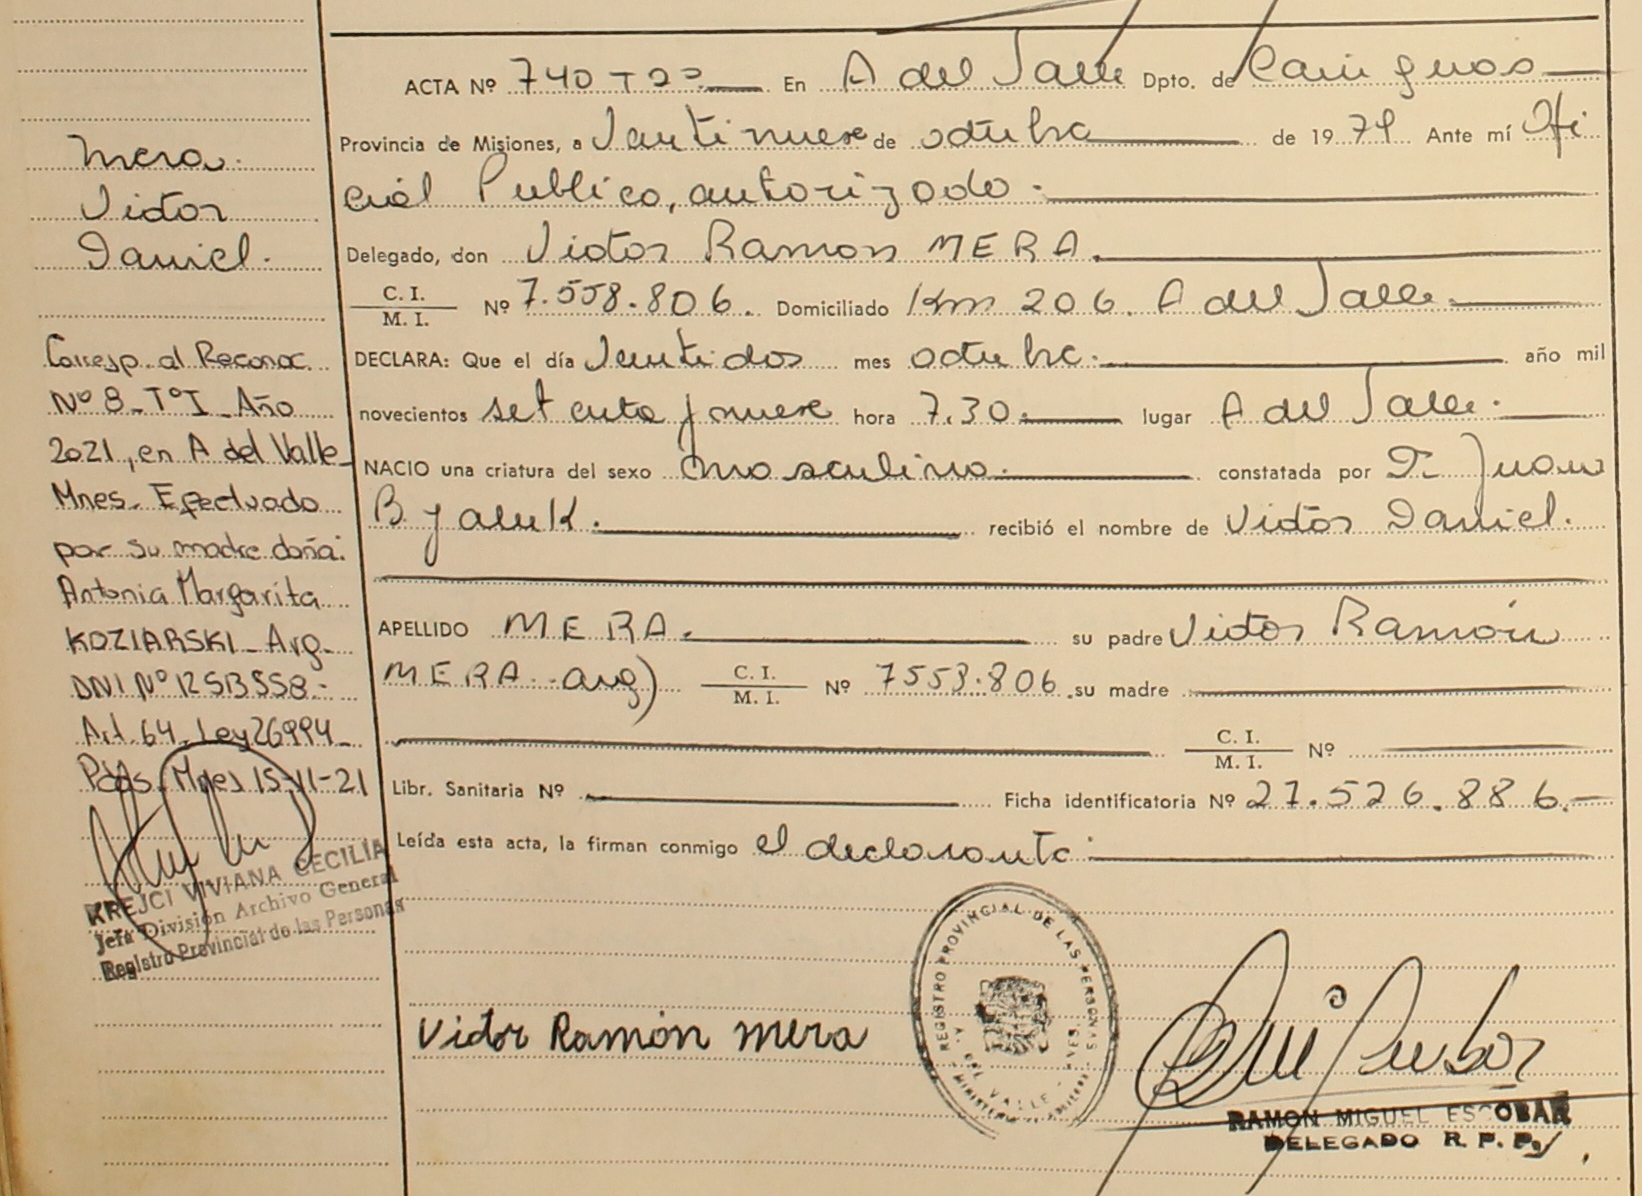 Mera
Victor
Daniel.
Corresp. al Reconoc.
Nº 8 - Tº I - Año
2021, en A del Valle
Mnes. Efectuado
por su madre doña:
Antonia Margarita
KOZIARSKI - Arg.
DNI Nº 12513558.-
Art. 64 - Ley 26994 -
Pdas. Mnes 15-11-21
KREJCI VIVIANA CECILIA
Jefa División Archivo General
Registro Provincial de las Personas
ACTA Nº 740 Tº 2º En A del Valle Dpto. de Cainguas
Provincia de Misiones, a Veintinueve de octubre de 1979 Ante mí Ofi
cial Publico, autorizado.
Delegado, don Victor Ramon MERA.
C. I. / M. I. Nº 7.558.806. Domiciliado Km 206. A del Valle.
DECLARA: Que el día Veintidos mes octubre. año mil
novecientos setenta y nueve hora 7.30. lugar A del Valle.
NACIO una criatura del sexo masculino. constatada por Dr. Juan
Byaluk. recibió el nombre de Victor Daniel.
APELLIDO MERA. su padre Victor Ramón
MERA. arg) C. I. / M. I. Nº 7558.806 su madre
C. I. / M. I. Nº
Libr. Sanitaria Nº Ficha identificatoria Nº 27.526.886.-
Leída esta acta, la firman conmigo el declarante.
Victor Ramón Mera
REGISTRO PROVINCIAL DE LAS PERSONAS
A. DEL VALLE - MNES.
RAMON MIGUEL ESCOBAR
DELEGADO R. P. P.